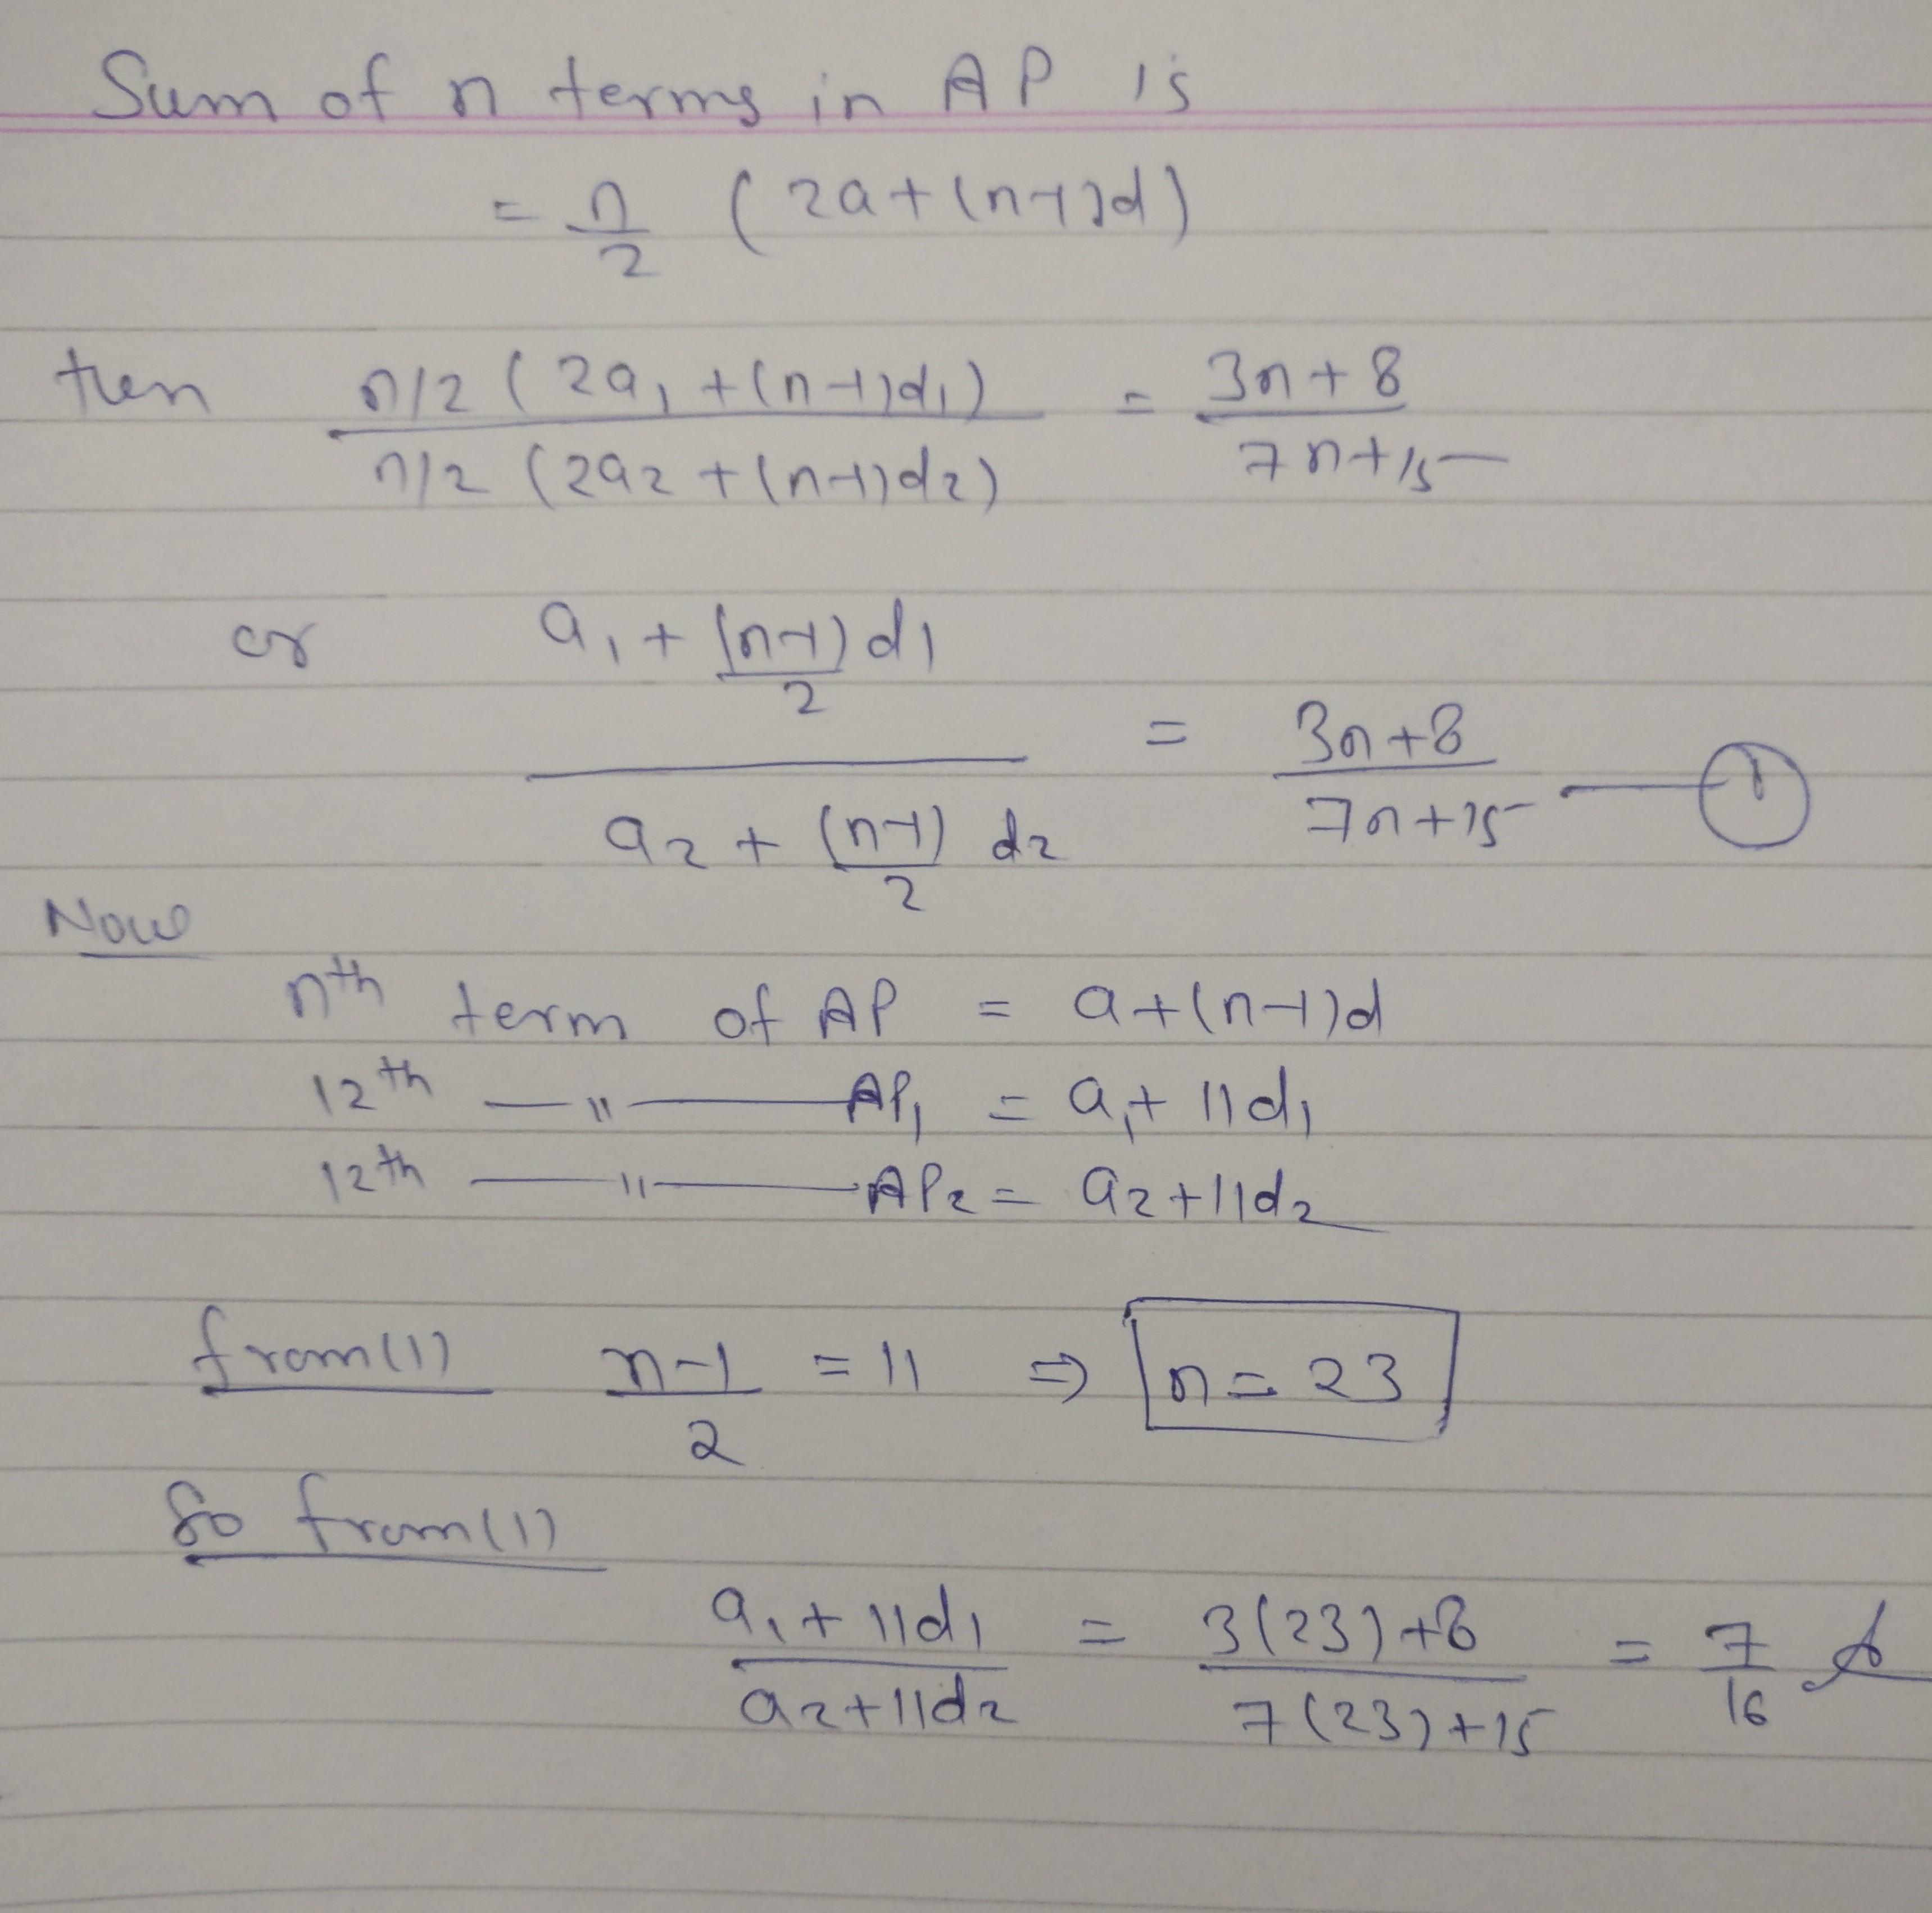 Sum of n terms in AP is
= n/2 (2a+(n-1)d)
then n/2 (2a1 +(n-1)d1) / n/2 (2a2 +(n-1)d2) = 3n+8 / 7n+15
or a1 + (n-1)/2 d1 / a2 + (n-1)/2 d2 = 3n+8 / 7n+15 — 1
Now
nth term of AP = a+(n-1)d
12th — " — AP1 = a1+ 11d1
12th — " — AP2 = a2+11d2
from(1) n-1/2 = 11 ⇒ n = 23
So from(1)
a1+11d1 / a2+11d2 = 3(23)+8 / 7(23)+15 = 7/16